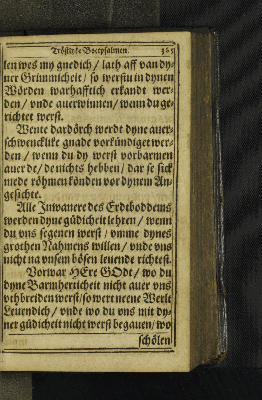 Tröstlyke Boetpsalmen. 365
len wes my gnedich / lath aff van dy-
ner Grimmicheit / so werstu in dynen
Wörden warhafftich erkandt wer-
den / vnde auerwinnen / wenn du ge-
richtet werst.
Wente dardörch werdt dyne auer-
schwencklike gnade vorkündiget wer-
den / wenn du dy werst vorbarmen
auer de / de nichts hebben / dar se sick
mede röhmen könden vor dynem An-
gesichte.
Alle Inwanere des Erdtboddems
werden dyne güdicheit lehren / wenn
du vns segenen werst / vmme dynes
grothen Nahmens willen / vnde vns
nicht na vnsem bösen leuende richtest.
Vorwar HEre GOdt / wo du
dyne Barmherticheit nicht auer vns
vthbreiden werst / so wert neene Werlt
Leuendich / vnde wo du vns mit dy-
ner güdicheit nicht werst begauen / wo
schölen